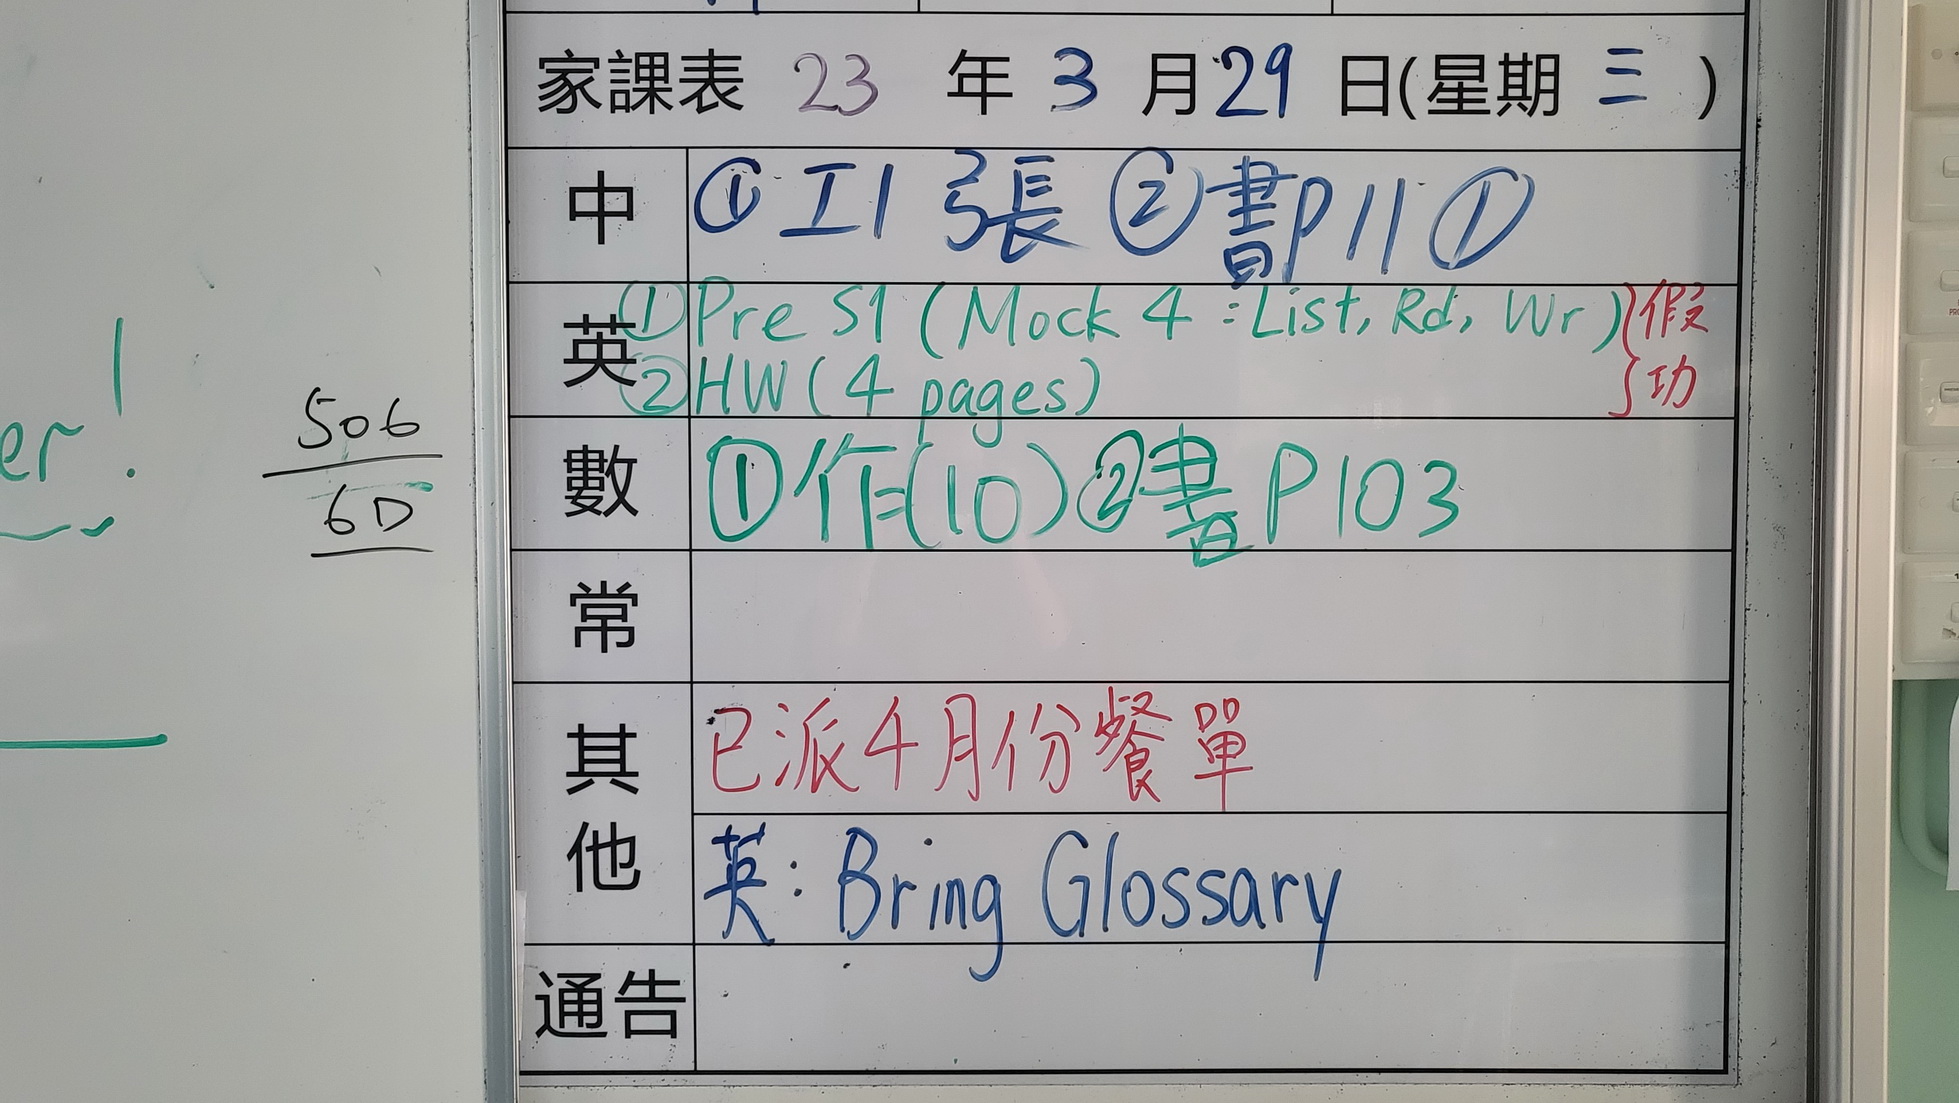 家課表 23 年 3 月 29 日(星期 三 )
中 ① 工1 張 ② 書P11 ①
英 ① Pre S1 (Mock 4 : List, Rd, Wr) } 假
② HW (4 pages) 功
數 ① 作(10) ② 書 P103
常
其他 已派4月份餐單
英: Bring Glossary
通告
er!
506
6D